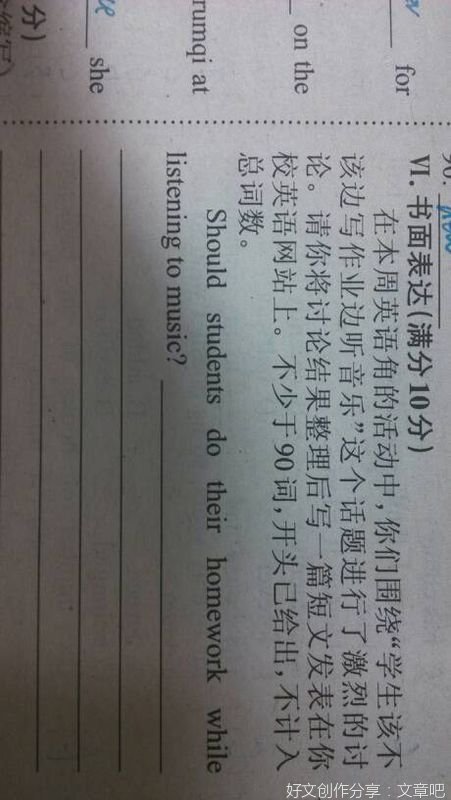 for
on the
rumqi at
she
分)
Ⅵ. 书面表达(满分10分)
在本周英语角的活动中,你们围绕“学生该不
该边写作业边听音乐”这个话题进行了激烈的讨
论。请你将讨论结果整理后写一篇短文发表在你
校英语网站上。不少于90词,开头已给出,不计入
总词数。
Should students do their homework while
listening to music?
好文创作分享:文章吧